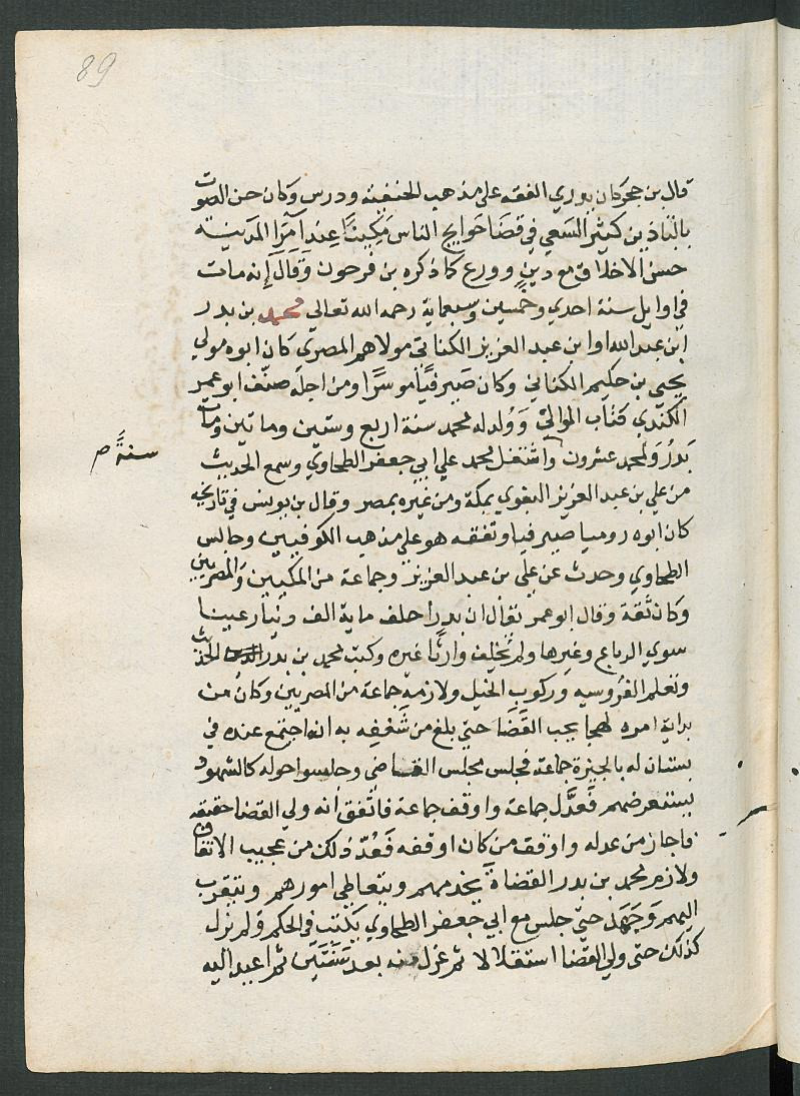 89
قال بن حجر كان يدري الفقه على مذهب الحنفية ودرس وكان حسن الصوت
بالتاذين كثير السعي في قضا حوايج الناس مكينا عند امرا المدينة
حسن الاخلاق مع دين وورع كما ذكره بن فرحون وقال انه مات
في اوايل سنة احدي وخمسين وسبعماية رحمه الله تعالي محمد بن بدر
ابن عبد الله اوا بن عبد العزيز الكناني مولاهم المصري كان ابوه مولي
يحيي بن حكيم الكناني وكان صيرفيا موسرا ومن اجله صنف ابو عمر
الكندي كتاب الموالي وولد له محمد سنة اربع وستين وماتين ومات
بدر ولمحمد عشرون واشتغل محمد علي ابي جعفر الطحاوي وسمع الحديث
سنة م
من علي بن عبد العزيز البغوي بمكة ومن غيره بمصر وقال بن يونس في تاريخه
كان ابوه روميا صيرفيا وتفقه هو علي مذهب الكوفيين وجالس
الطحاوي وحدث عن علي بن عبد العزيز وجماعة من المكيين والمصريين
وكان ثقة وقال ابو عمر يقال ان بدرا خلف ماية الف دينار عينا
سوي الرباع وغيرها ولم يخلف وارثا غيره وكتب محمد بن بدر الحديث
وتعلم الفروسيه وركوب الخيل ولازمه جماعة من المصريين وكان من
بداية امره لهجا بحب القضا حتي بلغ من شغفه به انه اجتمع عنده في
بستان له بالجيزة جماعة فجلس مجلس القاضي وجلسوا حوله كالشهود
يستعرضهم فعدل جماعة واوقف جماعة فاتفق انه ولي القضا حقيقة
فاجاز من عدله واوقف من كان اوقفه فعد ذلك من عجيب الاتفاق
ولازم محمد بن بدر القضاة يخدمهم ويتعاطي امورهم ويتقرب
اليهم وجهد حتي جلس مع ابي جعفر الطحاوي يكتب في الحكم ولم يزل
كذلك حتى ولي القضا استقلالا ثم عزل منه بعد سنتين ثم اعيد اليه